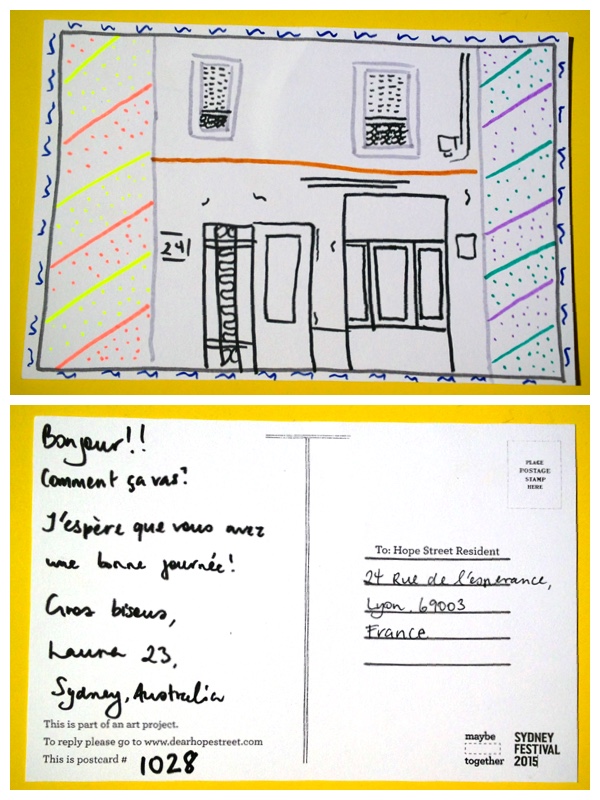 24
Bonjour!!
Comment ça vas?
J'espère que vous avez
une bonne journée!
Gros bisous,
Laura 23,
Sydney, Australia
This is part of an art project.
To reply please go to www.dearhopestreet.com
This is postcard # 1028
PLACE
POSTAGE
STAMP
HERE
To: Hope Street Resident
24 Rue de l'esperance,
Lyon, 69003
France
maybe
together
SYDNEY
FESTIVAL
2015